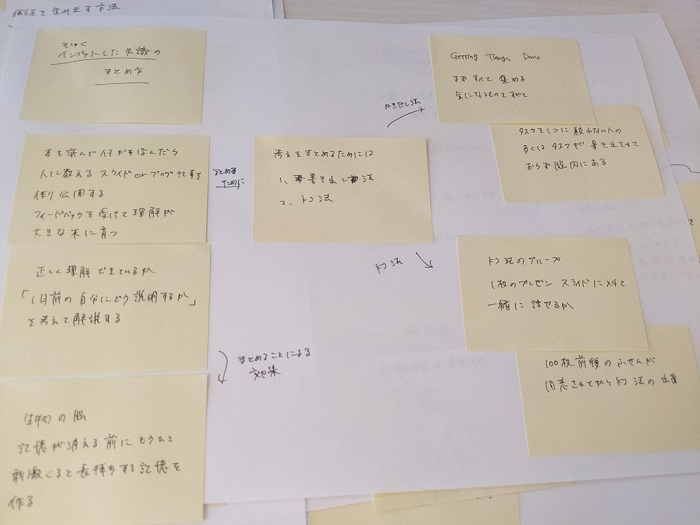 を生み出す方法
そしゃく
インプットした知識の
まとめ方
本を読んで何か学んだら
人に教える スライド or ブログ記事を
作り公開する
フィードバックを受けて理解が
大きな木に育つ
正しく理解できているか
「1日前の自分にどう説明するか」
を考えて解説する
生物の脳
記憶が消える前にもう一度
刺激くると長持ちする記憶を
作る
まとめる
ために
まとめることによる
効果
考えをまとめるためには
1、書き出し法
2、KJ法
書き出し法
KJ法
Getting Things Done
まずすべて集める
気になるものすべて
タスクを1つに絞れない人の
多くはタスクが書き出せて
おらず脳内にある
KJ法のグループ
1枚のプレゼンスライドに入れて
一緒に話せるか
100枚前後のふせんが
用意されてからKJ法の出番